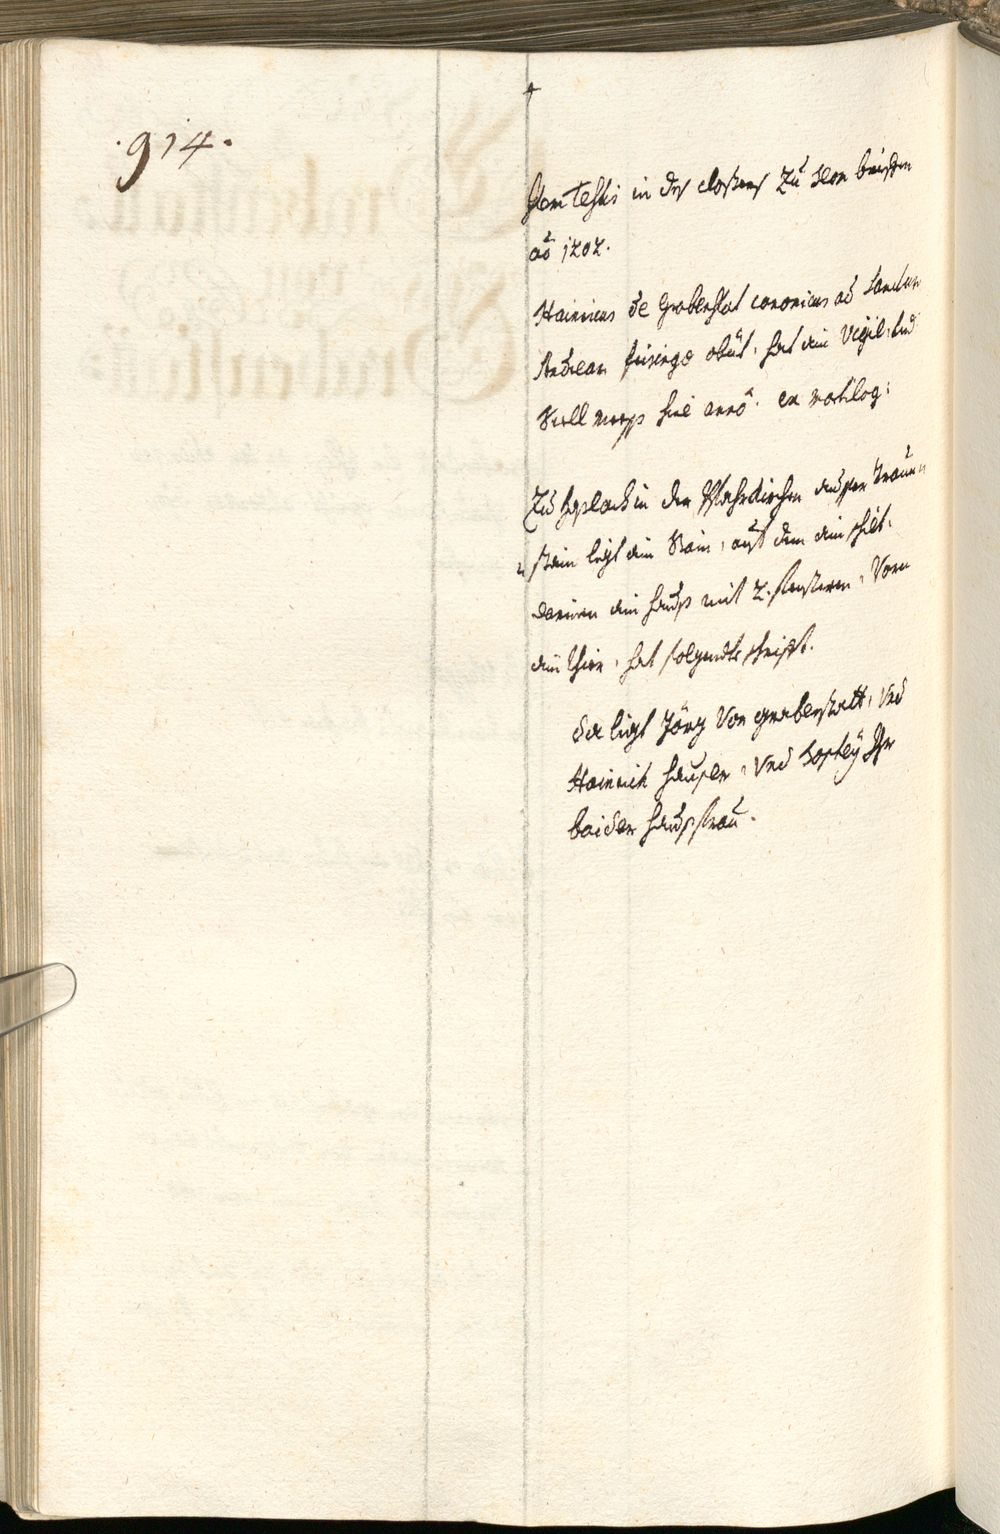 .914.
Item testis in des closters Zu Seon brieffen
aõ 1202.
Hainricus de Grabenstat canonicus ad Sanctum
Andream frisinge obiit, hat ain Vigil, und
Seell mess hie anno. ex martilog:
Zu haslach in der Pfahrkirchen ausser Traun
stain ligt ain Stain, auf dem ain schilt,
darinen ain hauss mit 2. fensteren, Vorn
ain thier, hat folgendte schrifft.
da ligt Jörg Von grabenstatt, Und
Hainrich hauser, Und Sophey Ihr
baider haussfrau.